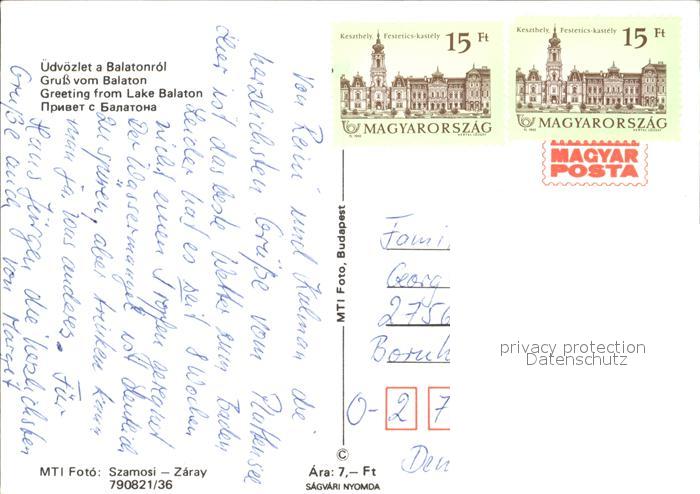 Üdvözlet a Balatonról
Gruß vom Balaton
Greeting from Lake Balaton
Привет с Балатона
Von Reini und Kalman die
herzlichsten Grüße vom Plattensee
Hier ist das beste Wetter zum Baden
Leider hat es seit 8 Wochen
nicht einen Tropfen geregnet
Der Wassermangel ist deutlich
zu spüren, aber trinken kann
man ja was anderes. Für
Hans Jürgen die herzlichsten
Grüße auch von Margot
MTI Fotó: Szamosi – Záray
790821/36
MTI Foto, Budapest
©
Ára: 7,– Ft
SÁGVÁRI NYOMDA
Keszthely, Festetics-kastély
15 Ft
MAGYARORSZÁG
Keszthely, Festetics-kastély
15 Ft
MAGYARORSZÁG
MAGYAR
POSTA
Fami
Georg
2756
Bornh
O- 2 7
Deu
privacy protection
Datenschutz